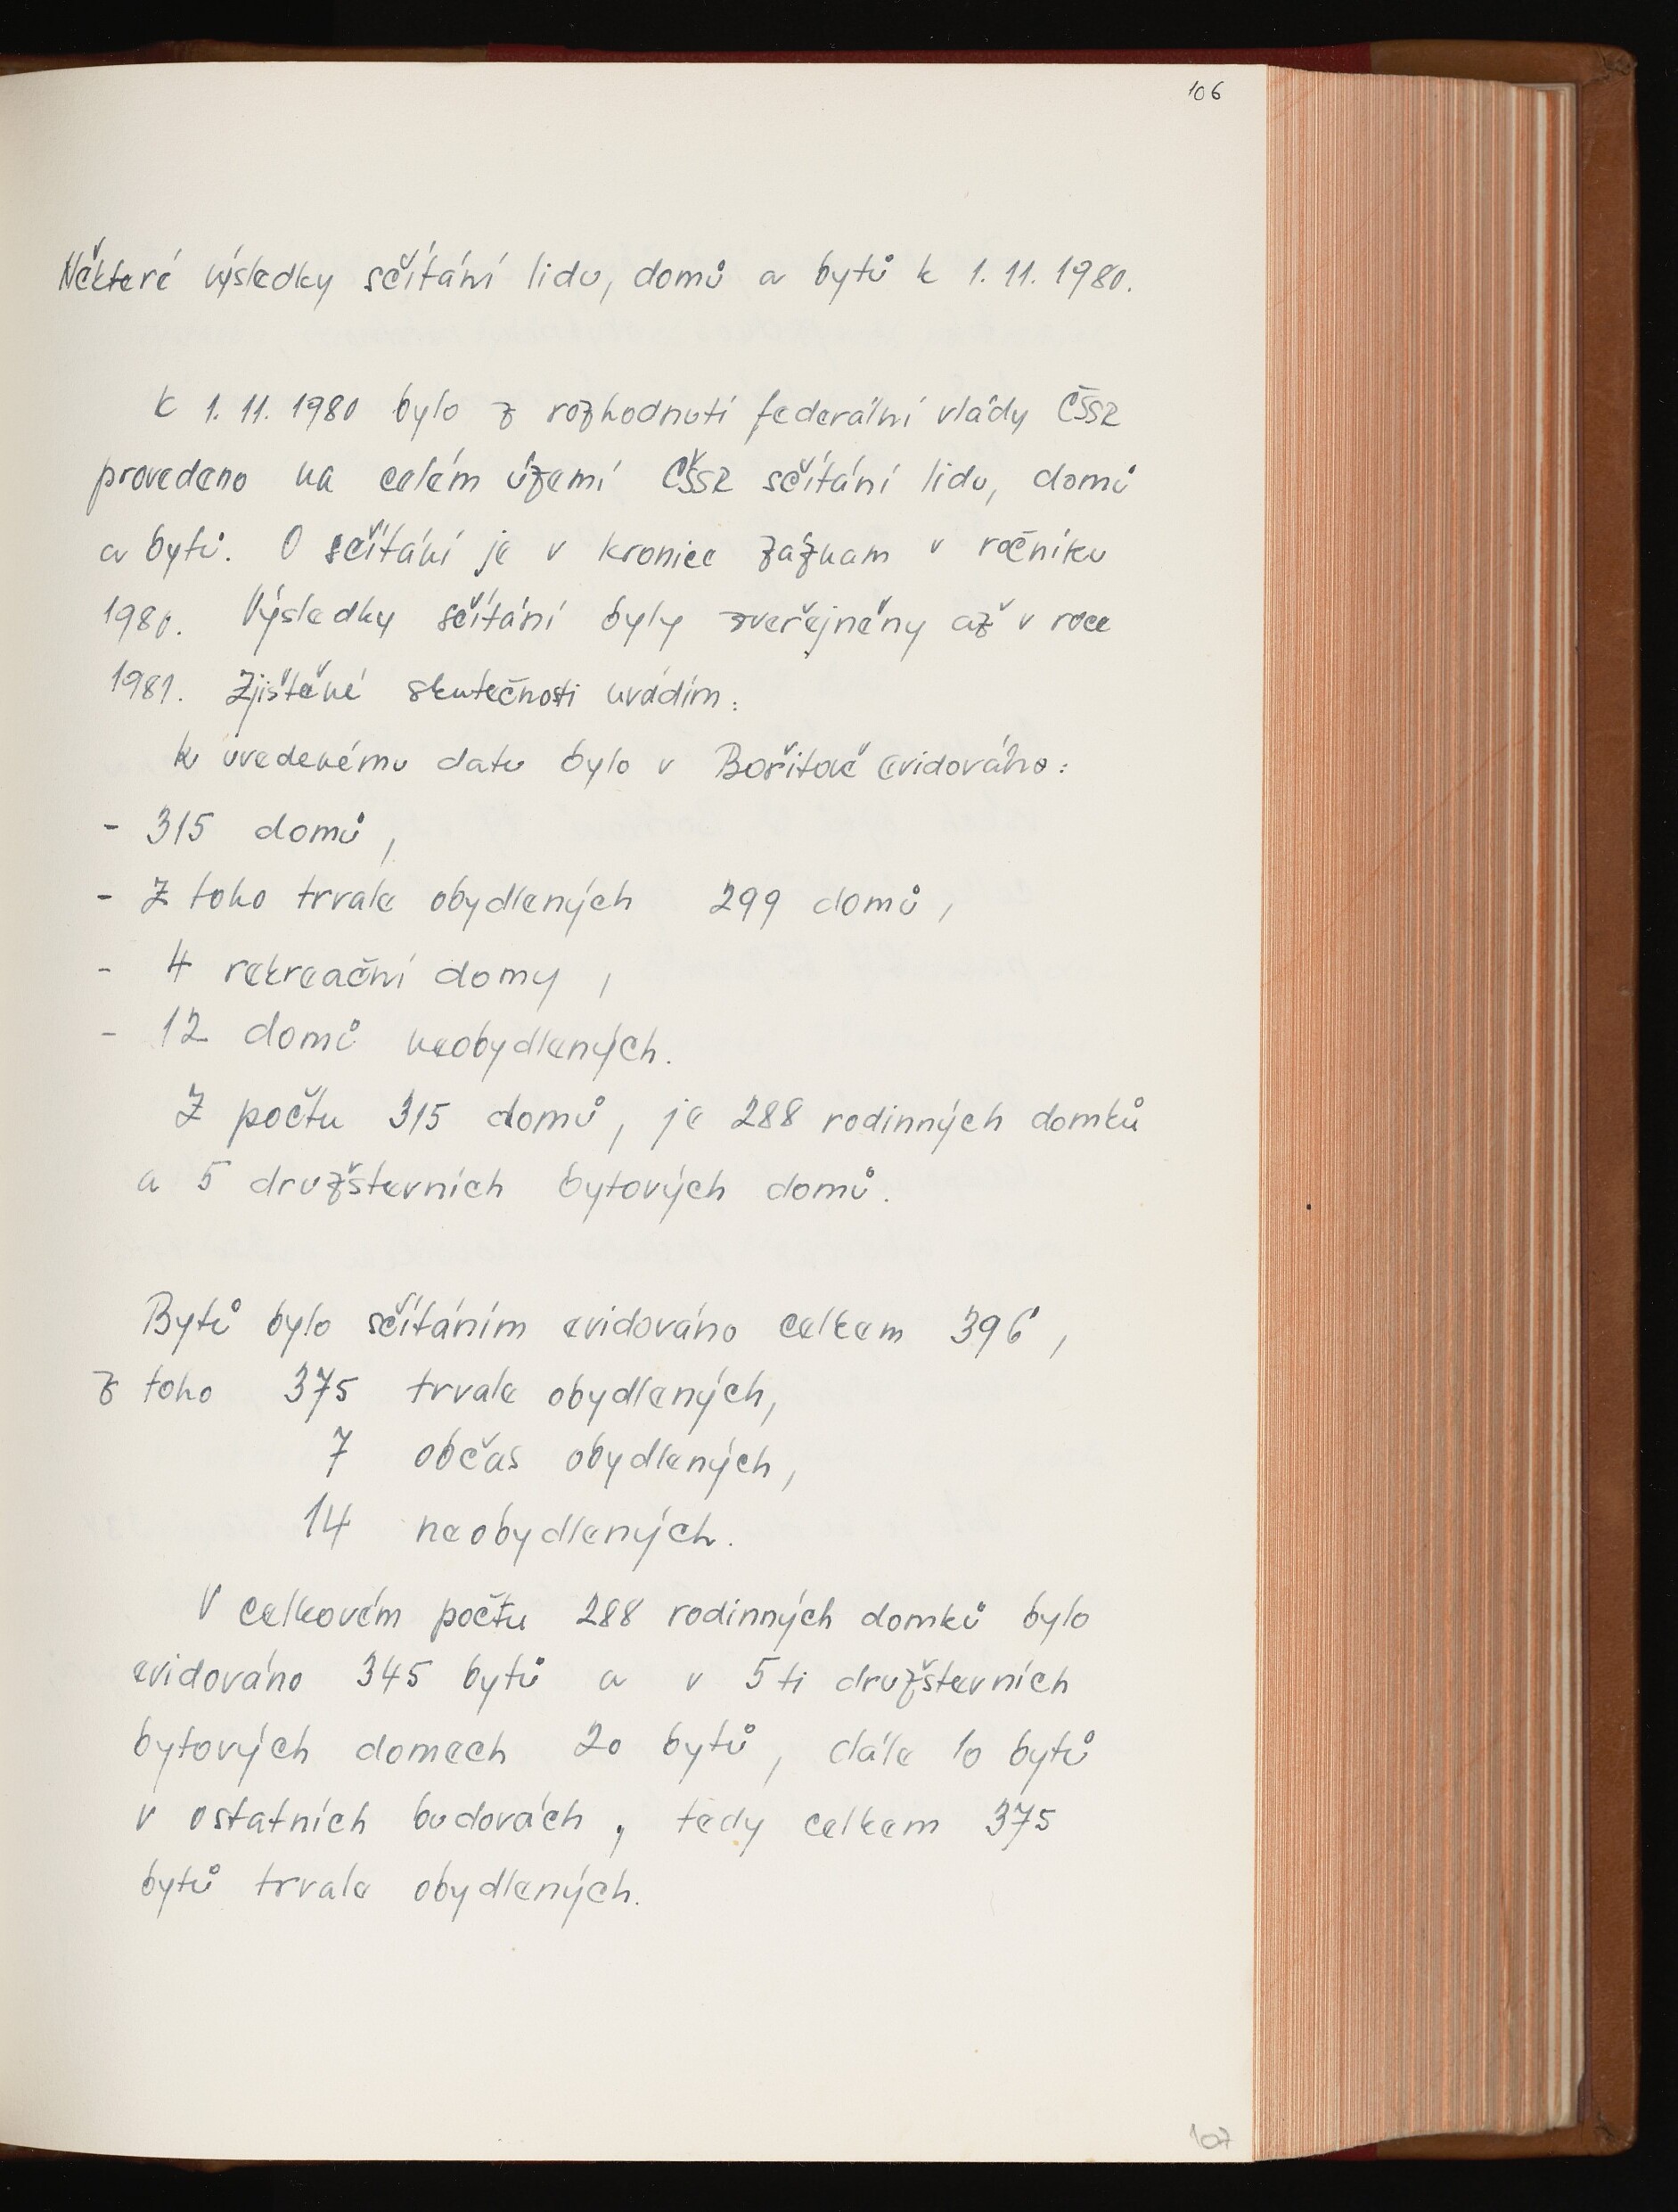 106
Některé výsledky sčítání lidu, domů a bytů k 1. 11. 1980.
K 1. 11. 1980 bylo z rozhodnutí federální vlády ČSSR
provedeno na celém území ČSSR sčítání lidu, domů
a bytů. O sčítání je v kronice záznam v ročníku
1980. Výsledky sčítání byly zveřejněny až v roce
1981. Zjištěné skutečnosti uvádím:
K uvedenému datu bylo v Bořitově evidováno:
- 315 domů,
- Z toho trvale obydlených 299 domů,
- 4 rekreační domy,
- 12 domů neobydlených.
Z počtu 315 domů, je 288 rodinných domků
a 5 družštevních bytových domů.
Bytů bylo sčítáním evidováno celkem 396,
z toho 375 trvale obydlených,
7 občas obydlených,
14 neobydlených.
V celkovém počtu 288 rodinných domků bylo
evidováno 345 bytů a v 5ti družštevních
bytových domech 20 bytů, dále 10 bytů
v ostatních budovách, tedy celkem 375
bytů trvale obydlených.
107